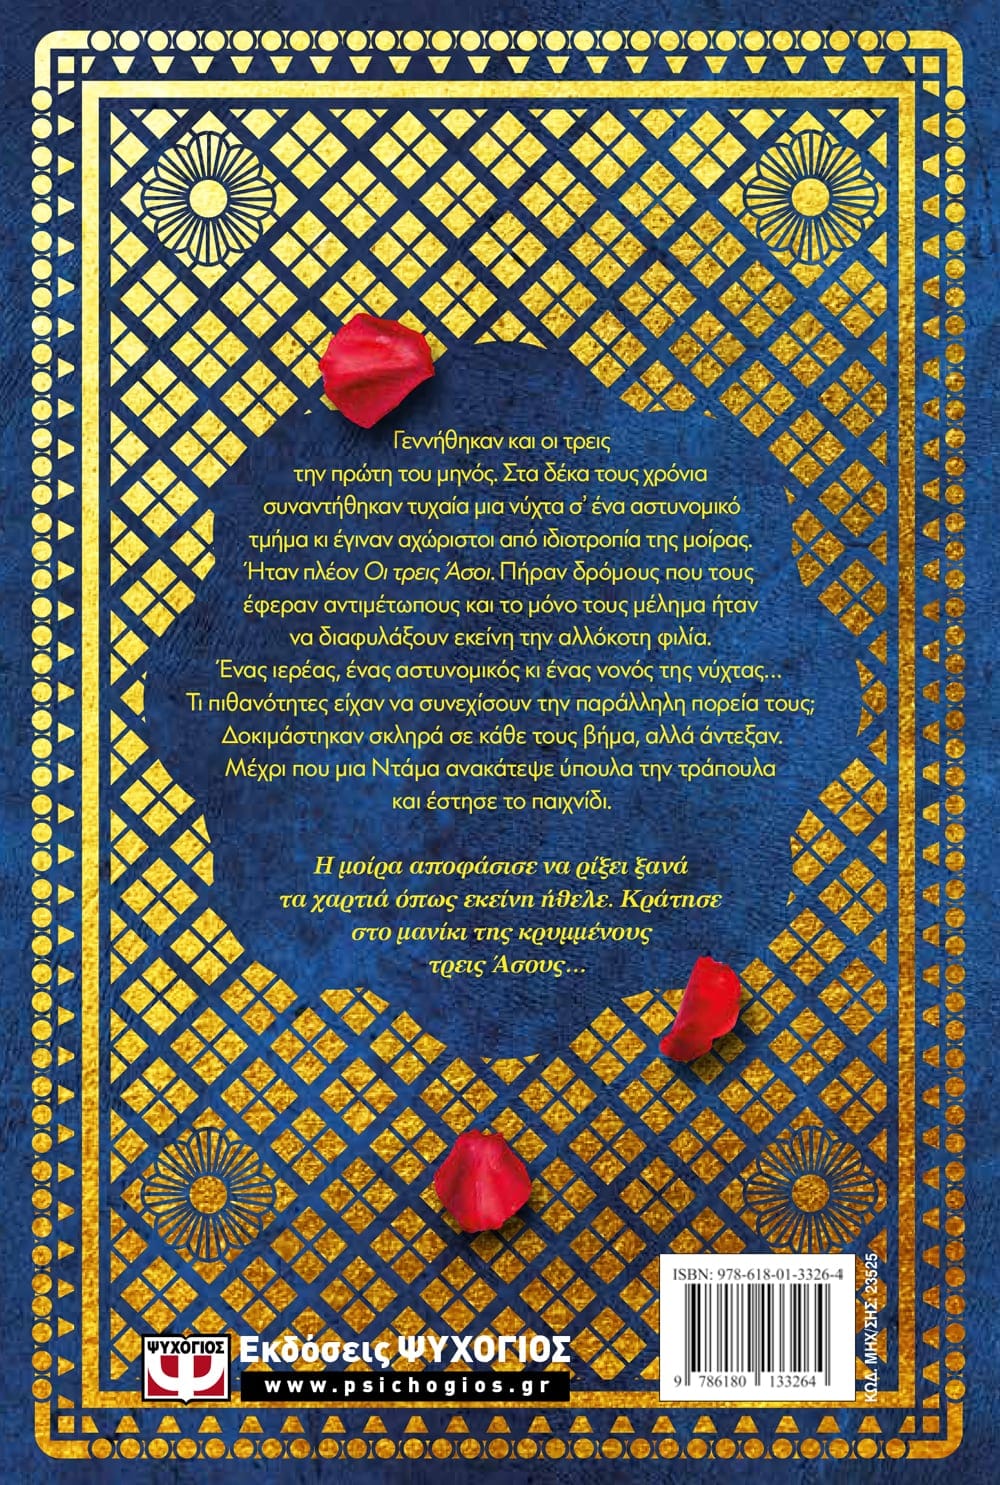 Γεννήθηκαν και οι τρεις
την πρώτη του μηνός. Στα δέκα τους χρόνια
συναντήθηκαν τυχαία μια νύχτα σ’ ένα αστυνομικό
τμήμα κι έγιναν αχώριστοι από ιδιοτροπία της μοίρας.
Ήταν πλέον Οι τρεις Άσοι. Πήραν δρόμους που τους
έφεραν αντιμέτωπους και το μόνο τους μέλημα ήταν
να διαφυλάξουν εκείνη την αλλόκοτη φιλία.
Ένας ιερέας, ένας αστυνομικός κι ένας νονός της νύχτας...
Τι πιθανότητες είχαν να συνεχίσουν την παράλληλη πορεία τους;
Δοκιμάστηκαν σκληρά σε κάθε τους βήμα, αλλά άντεξαν.
Μέχρι που μια Ντάμα ανακάτεψε ύπουλα την τράπουλα
και έστησε το παιχνίδι.
Η μοίρα αποφάσισε να ρίξει ξανά
τα χαρτιά όπως εκείνη ήθελε. Κράτησε
στο μανίκι της κρυμμένους
τρεις Άσους...
ISBN: 978-618-01-3326-4
9 786180 133264
ΚΩΔ. ΜΗΧ/ΣΗΣ 23525
ΨΥΧΟΓΙΟΣ
Εκδόσεις ΨΥΧΟΓΙΟΣ
www.psichogios.gr